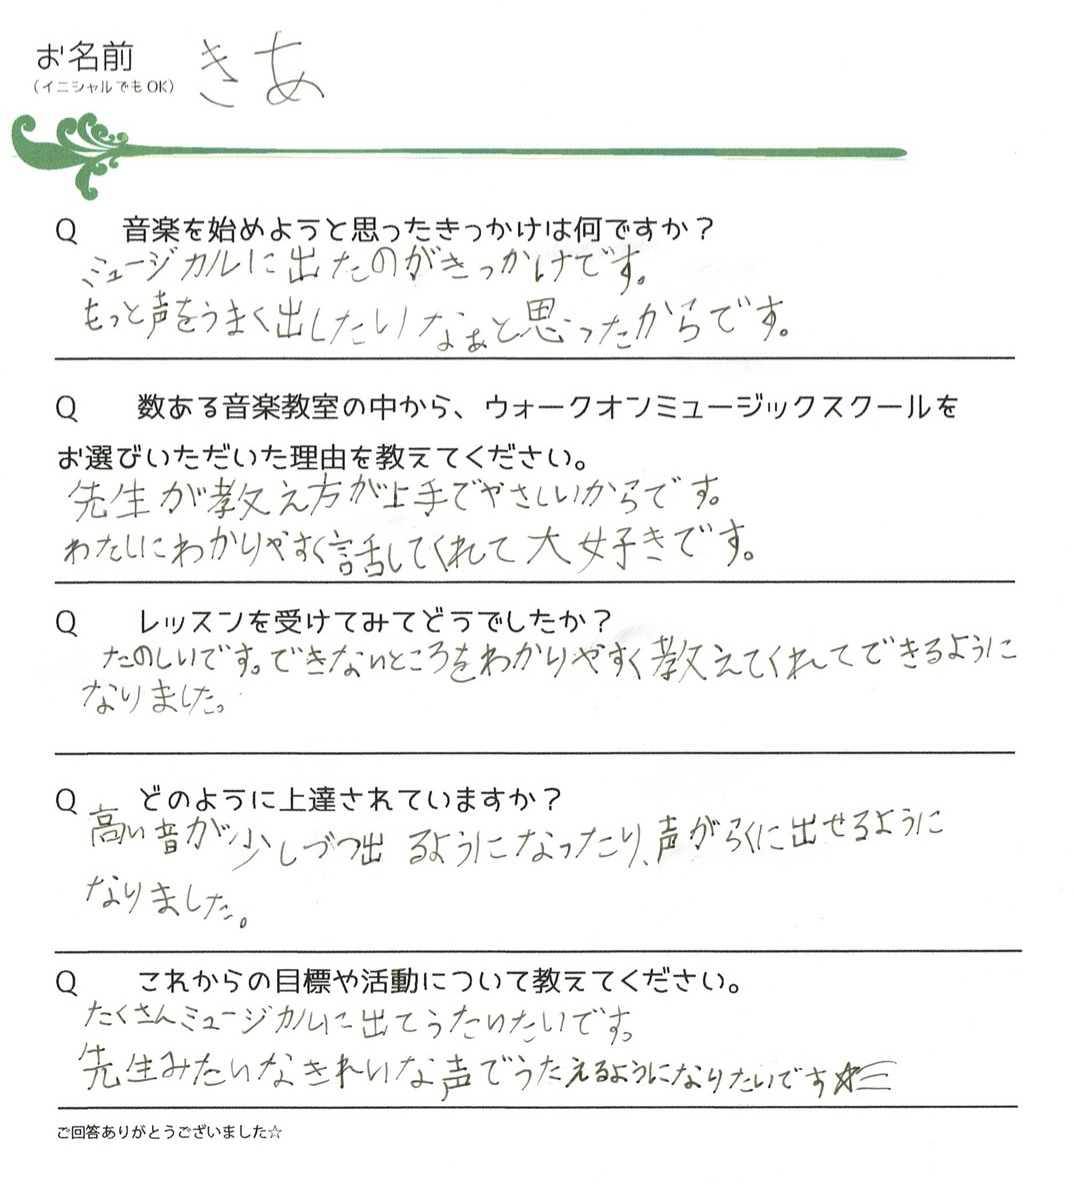 お名前 きあ
（イニシャルでもOK）
Q 音楽を始めようと思ったきっかけは何ですか？
ミュージカルに出たのがきっかけです。
もっと声をうまく出したいなぁと思ったからです。
Q 数ある音楽教室の中から、ウォークオンミュージックスクールを
お選びいただいた理由を教えてください。
先生が教え方が上手でやさしいからです。
わたしにわかりやすく話してくれて大好きです。
Q レッスンを受けてみてどうでしたか？
たのしいです。できないところをわかりやすく教えてくれてできるように
なりました。
Q どのように上達されていますか？
高い音が少しづつ出るようになったり、声がらくに出せるように
なりました。
Q これからの目標や活動について教えてください。
たくさんミュージカルに出てうたいたいです。
先生みたいなきれいな声でうたえるようになりたいです☆彡
ご回答ありがとうございました☆